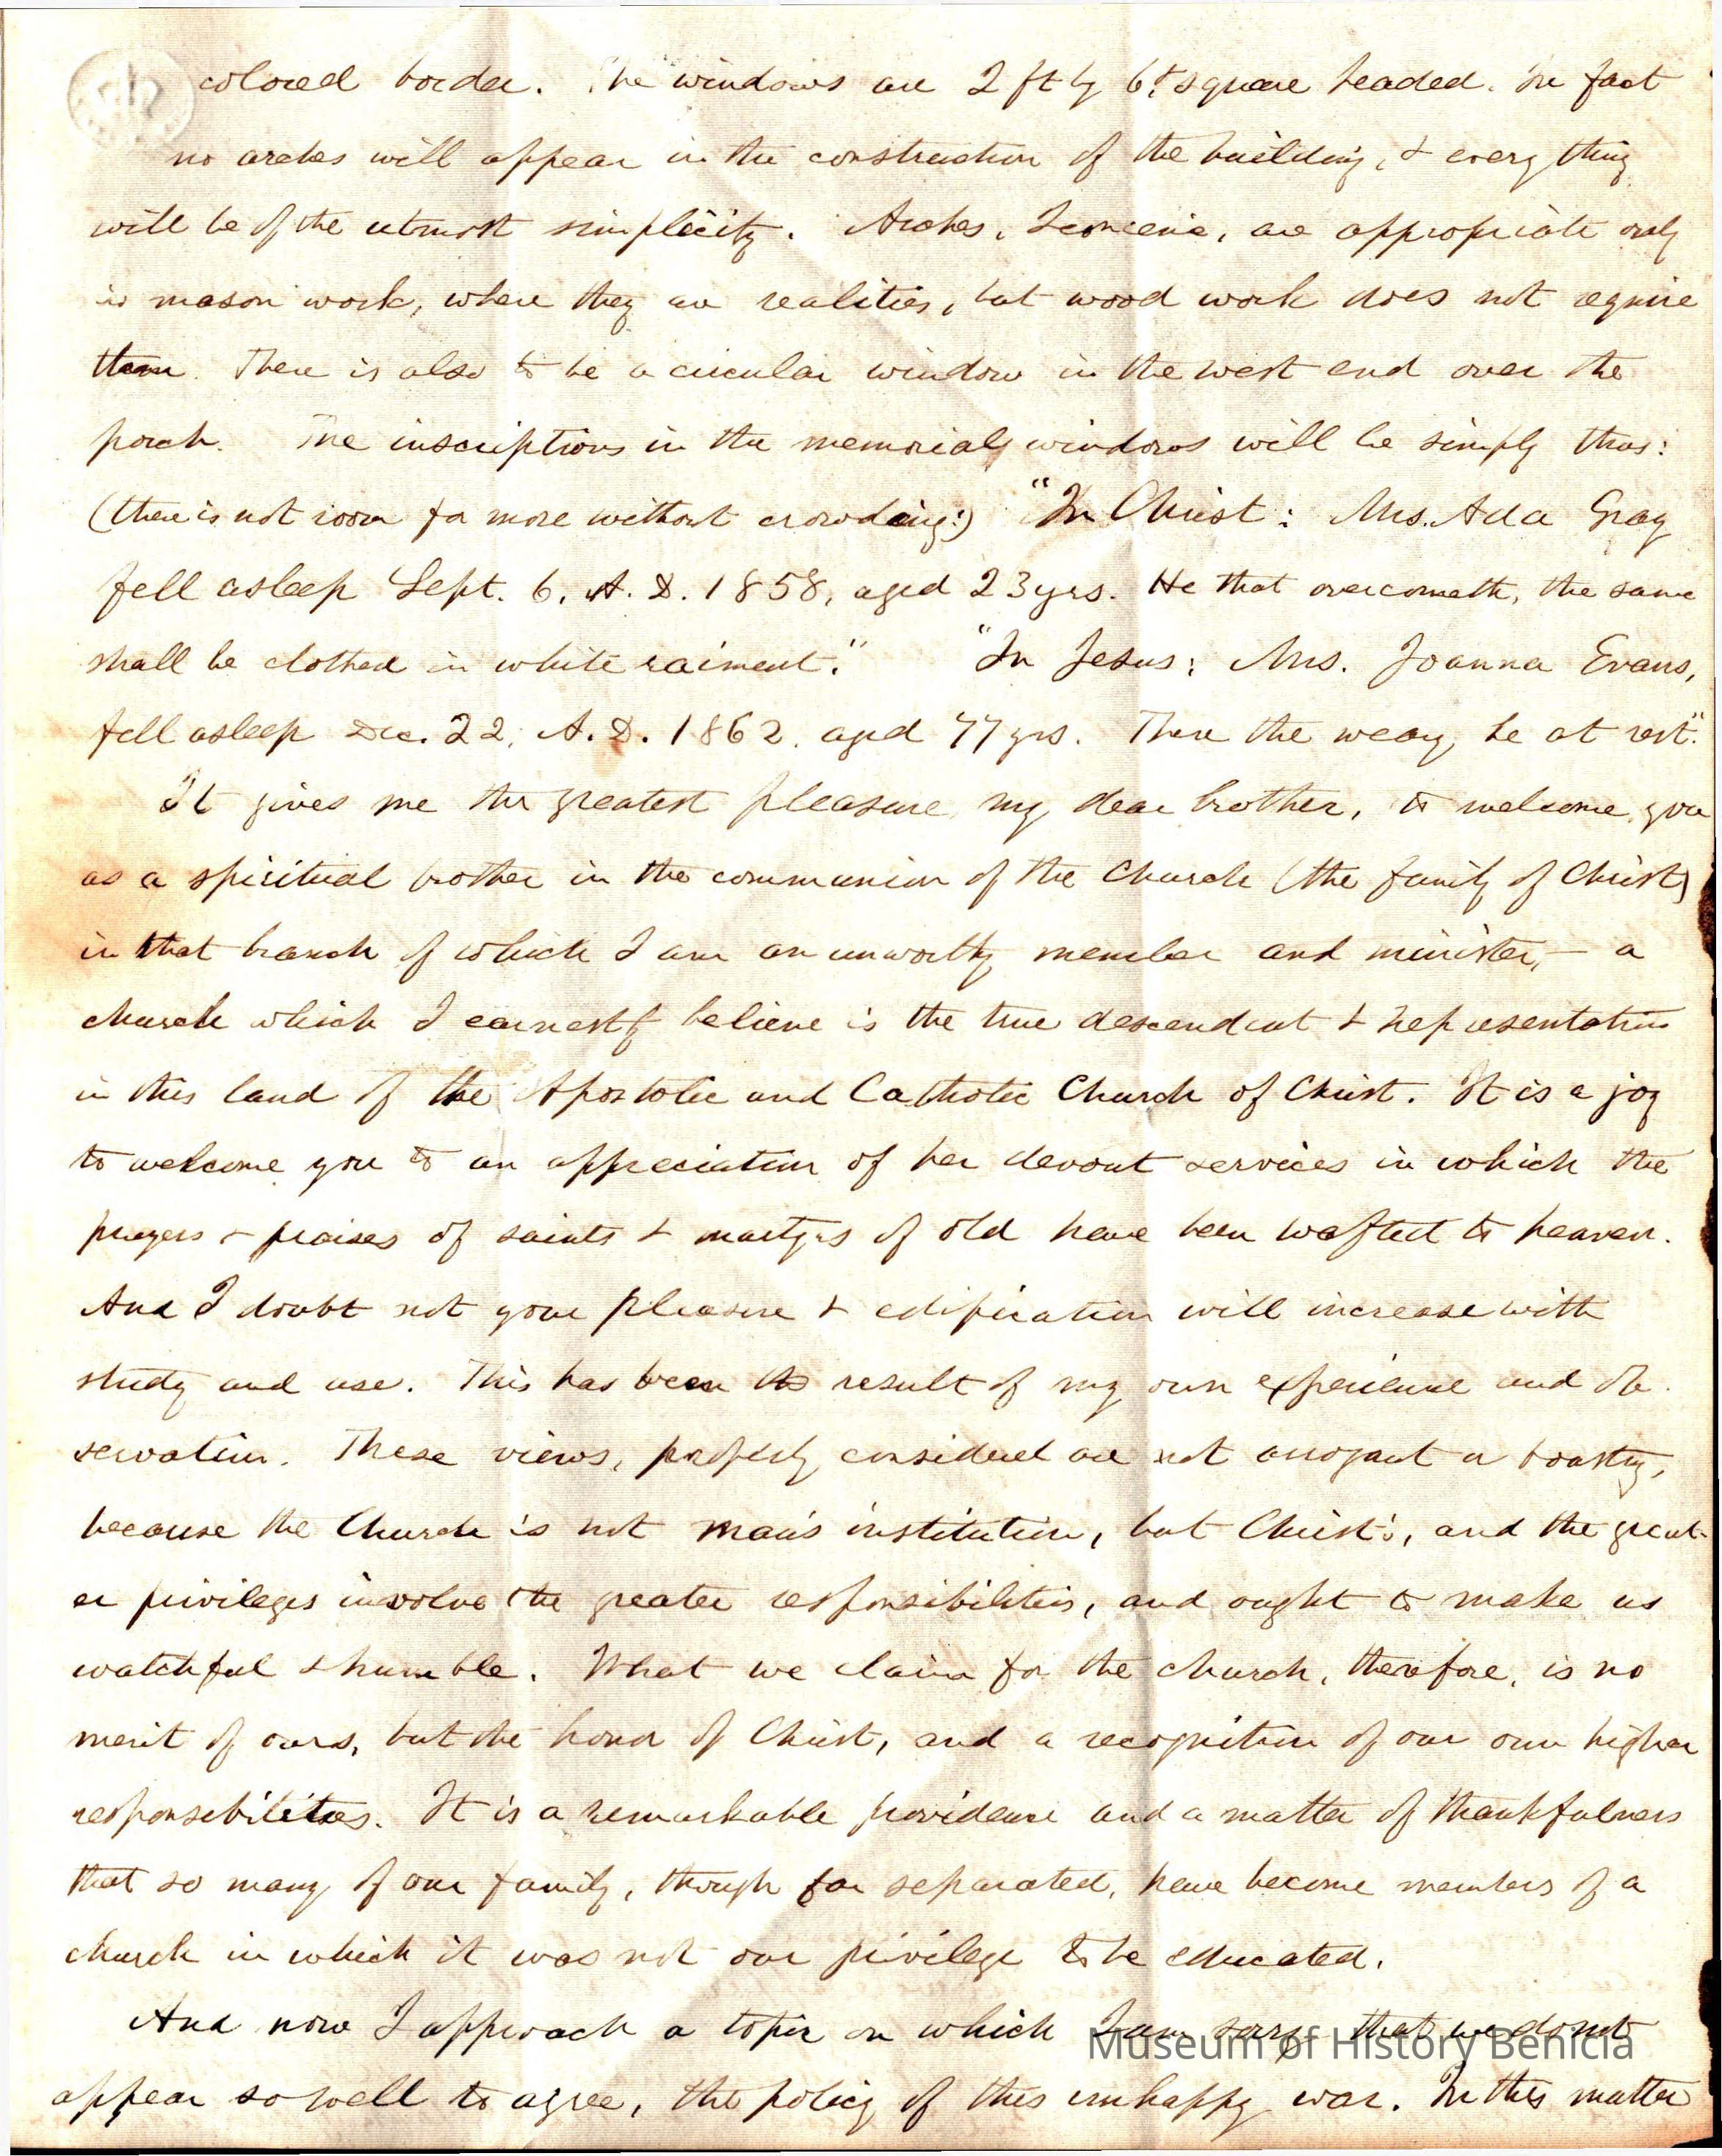 colored border. The windows are 2 ft by 6ft square headed. In fact
no arches will appear in the construction of the building, & every thing
will be of the utmost simplicity. Arches, I conceive, are appropriate only
in mason work, where they are realities, but wood work does not require
them. There is also to be a circular window in the west end over the
porch. The inscriptions in the memorial windows will be simply thus:
(there is not room for more without crowding:) "In Christ: Mrs. Ada Gray
fell asleep Sept. 6, A. D. 1858, aged 23 yrs. He that overcometh, the same
shall be clothed in white raiment." "In Jesus: Mrs. Joanna Evans,
fell asleep Dec. 22, A. D. 1862, aged 77 yrs. There the weary be at rest."
It gives me the greatest pleasure my dear brother, to welcome you
as a spiritual brother in the communion of the Church (the family of Christ)
in that branch of which I am an unworthy member and minister, — a
church which I earnestly believe is the true descendent & representative
in this land of the Apostolic and Catholic Church of Christ. It is a joy
to welcome you to an appreciation of her devout services in which the
prayers & praises of saints & martyrs of old have been wafted to heaven.
And I doubt not your pleasure & edification will increase with
study and use. This has been the result of my own experience and ob-
servation. These views, properly considered are not arrogant or boasting,
because the Church is not man's institution, but Christ's, and the great-
er privileges involve the greater responsibilities, and ought to make us
watchful & humble. What we claim for the church, therefore, is no
merit of ours, but the honor of Christ, and a recognition of our own higher
responsibilities. It is a remarkable providence and a matter of thankfulness
that so many of our family, though far separated, have become members of a
church in which it was not our privilege to be educated.
And now I approach a topic on which I am sorry that we do not
Museum of History Benicia
appear so well to agree, the policy of this unhappy war. In this matter